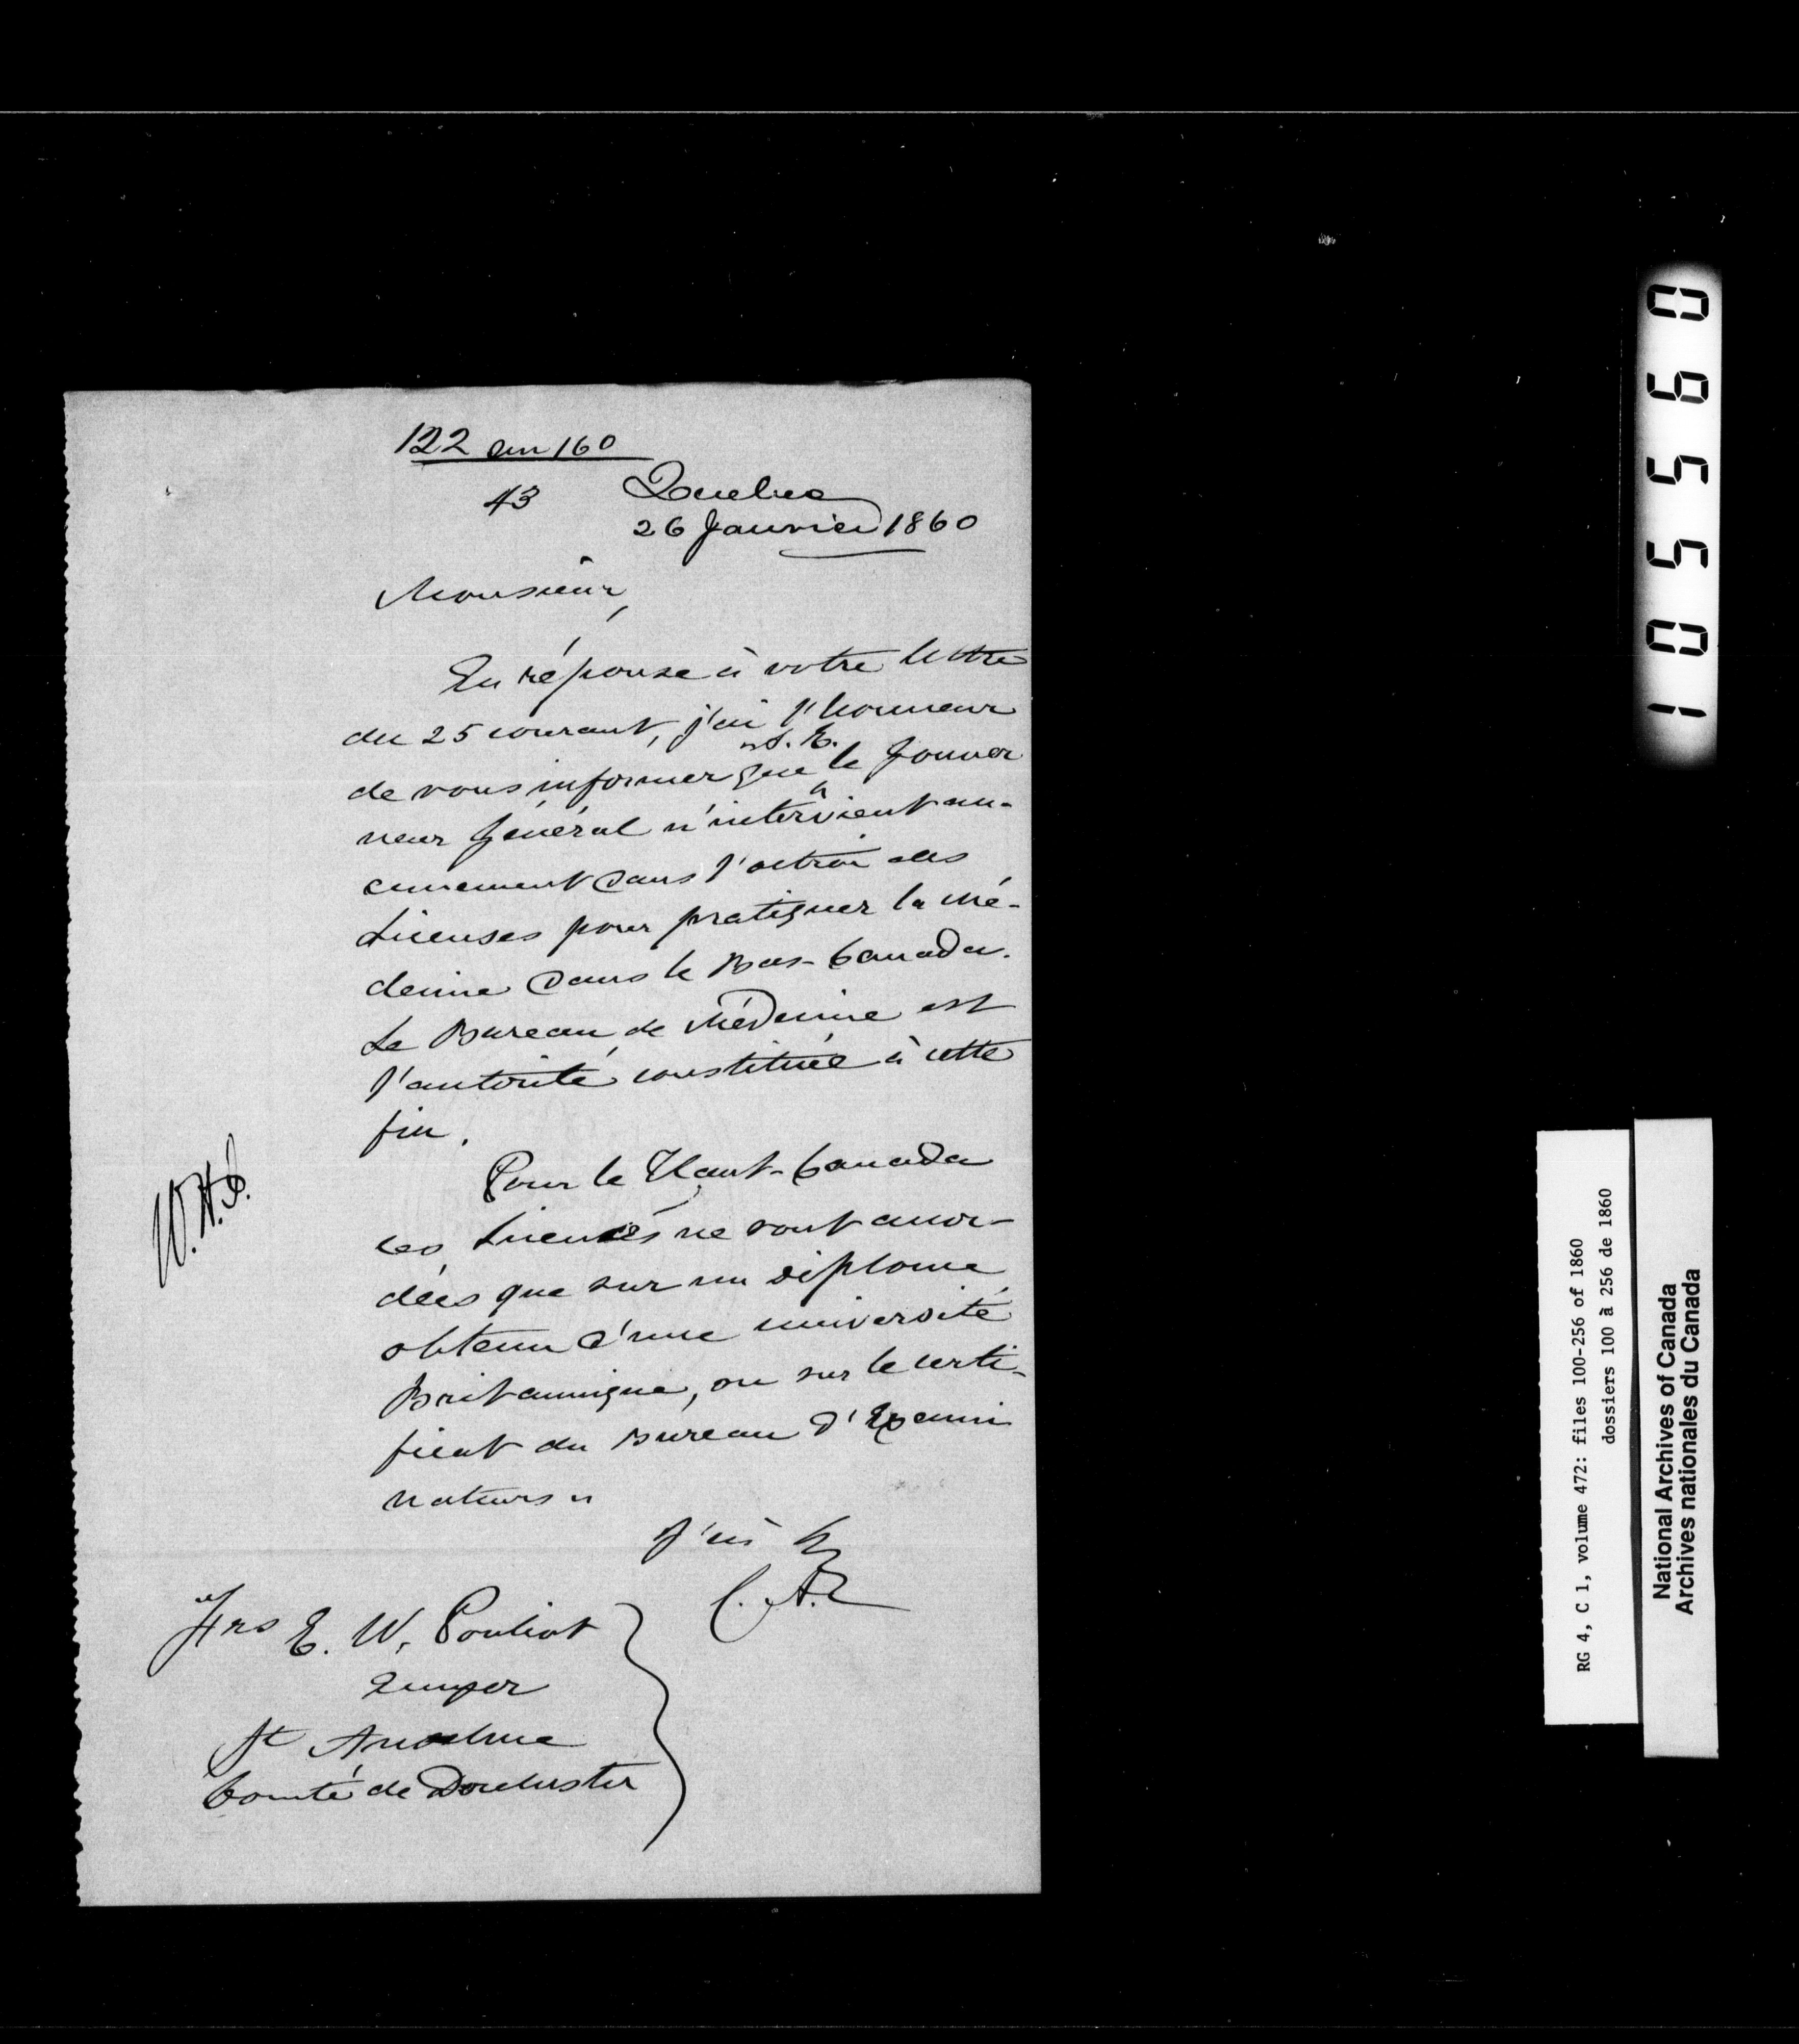 122 au 160
43
Quebec
26 Janvier 1860
Monsieur,
En réponse à votre lettre
du 25 courant, j'ai l'honneur
de vous informer que S. E. le Gouver
neur Général n'intervient au-
cunement dans l'octroi des
Licenses pour pratiquer la mé-
decine dans le Bas-Canada.
Le Bureau de Médecine est
l'autorité constituée à cette
fin.
Pour le Haut-Canada
les Licences ne sont accor-
dées que sur un diplome
obtenu d'une université
Britannique, ou sur le certi-
ficat du Bureau d'Exami
nateurs
W.H.G.
J'ai
C. A.
Frs E. W. Pouliot
Ecuyer
St Anselme
Comté de Dorchester
105560
RG 4, C 1, volume 472: files 100-256 of 1860
dossiers 100 à 256 de 1860
National Archives of Canada
Archives nationales du Canada